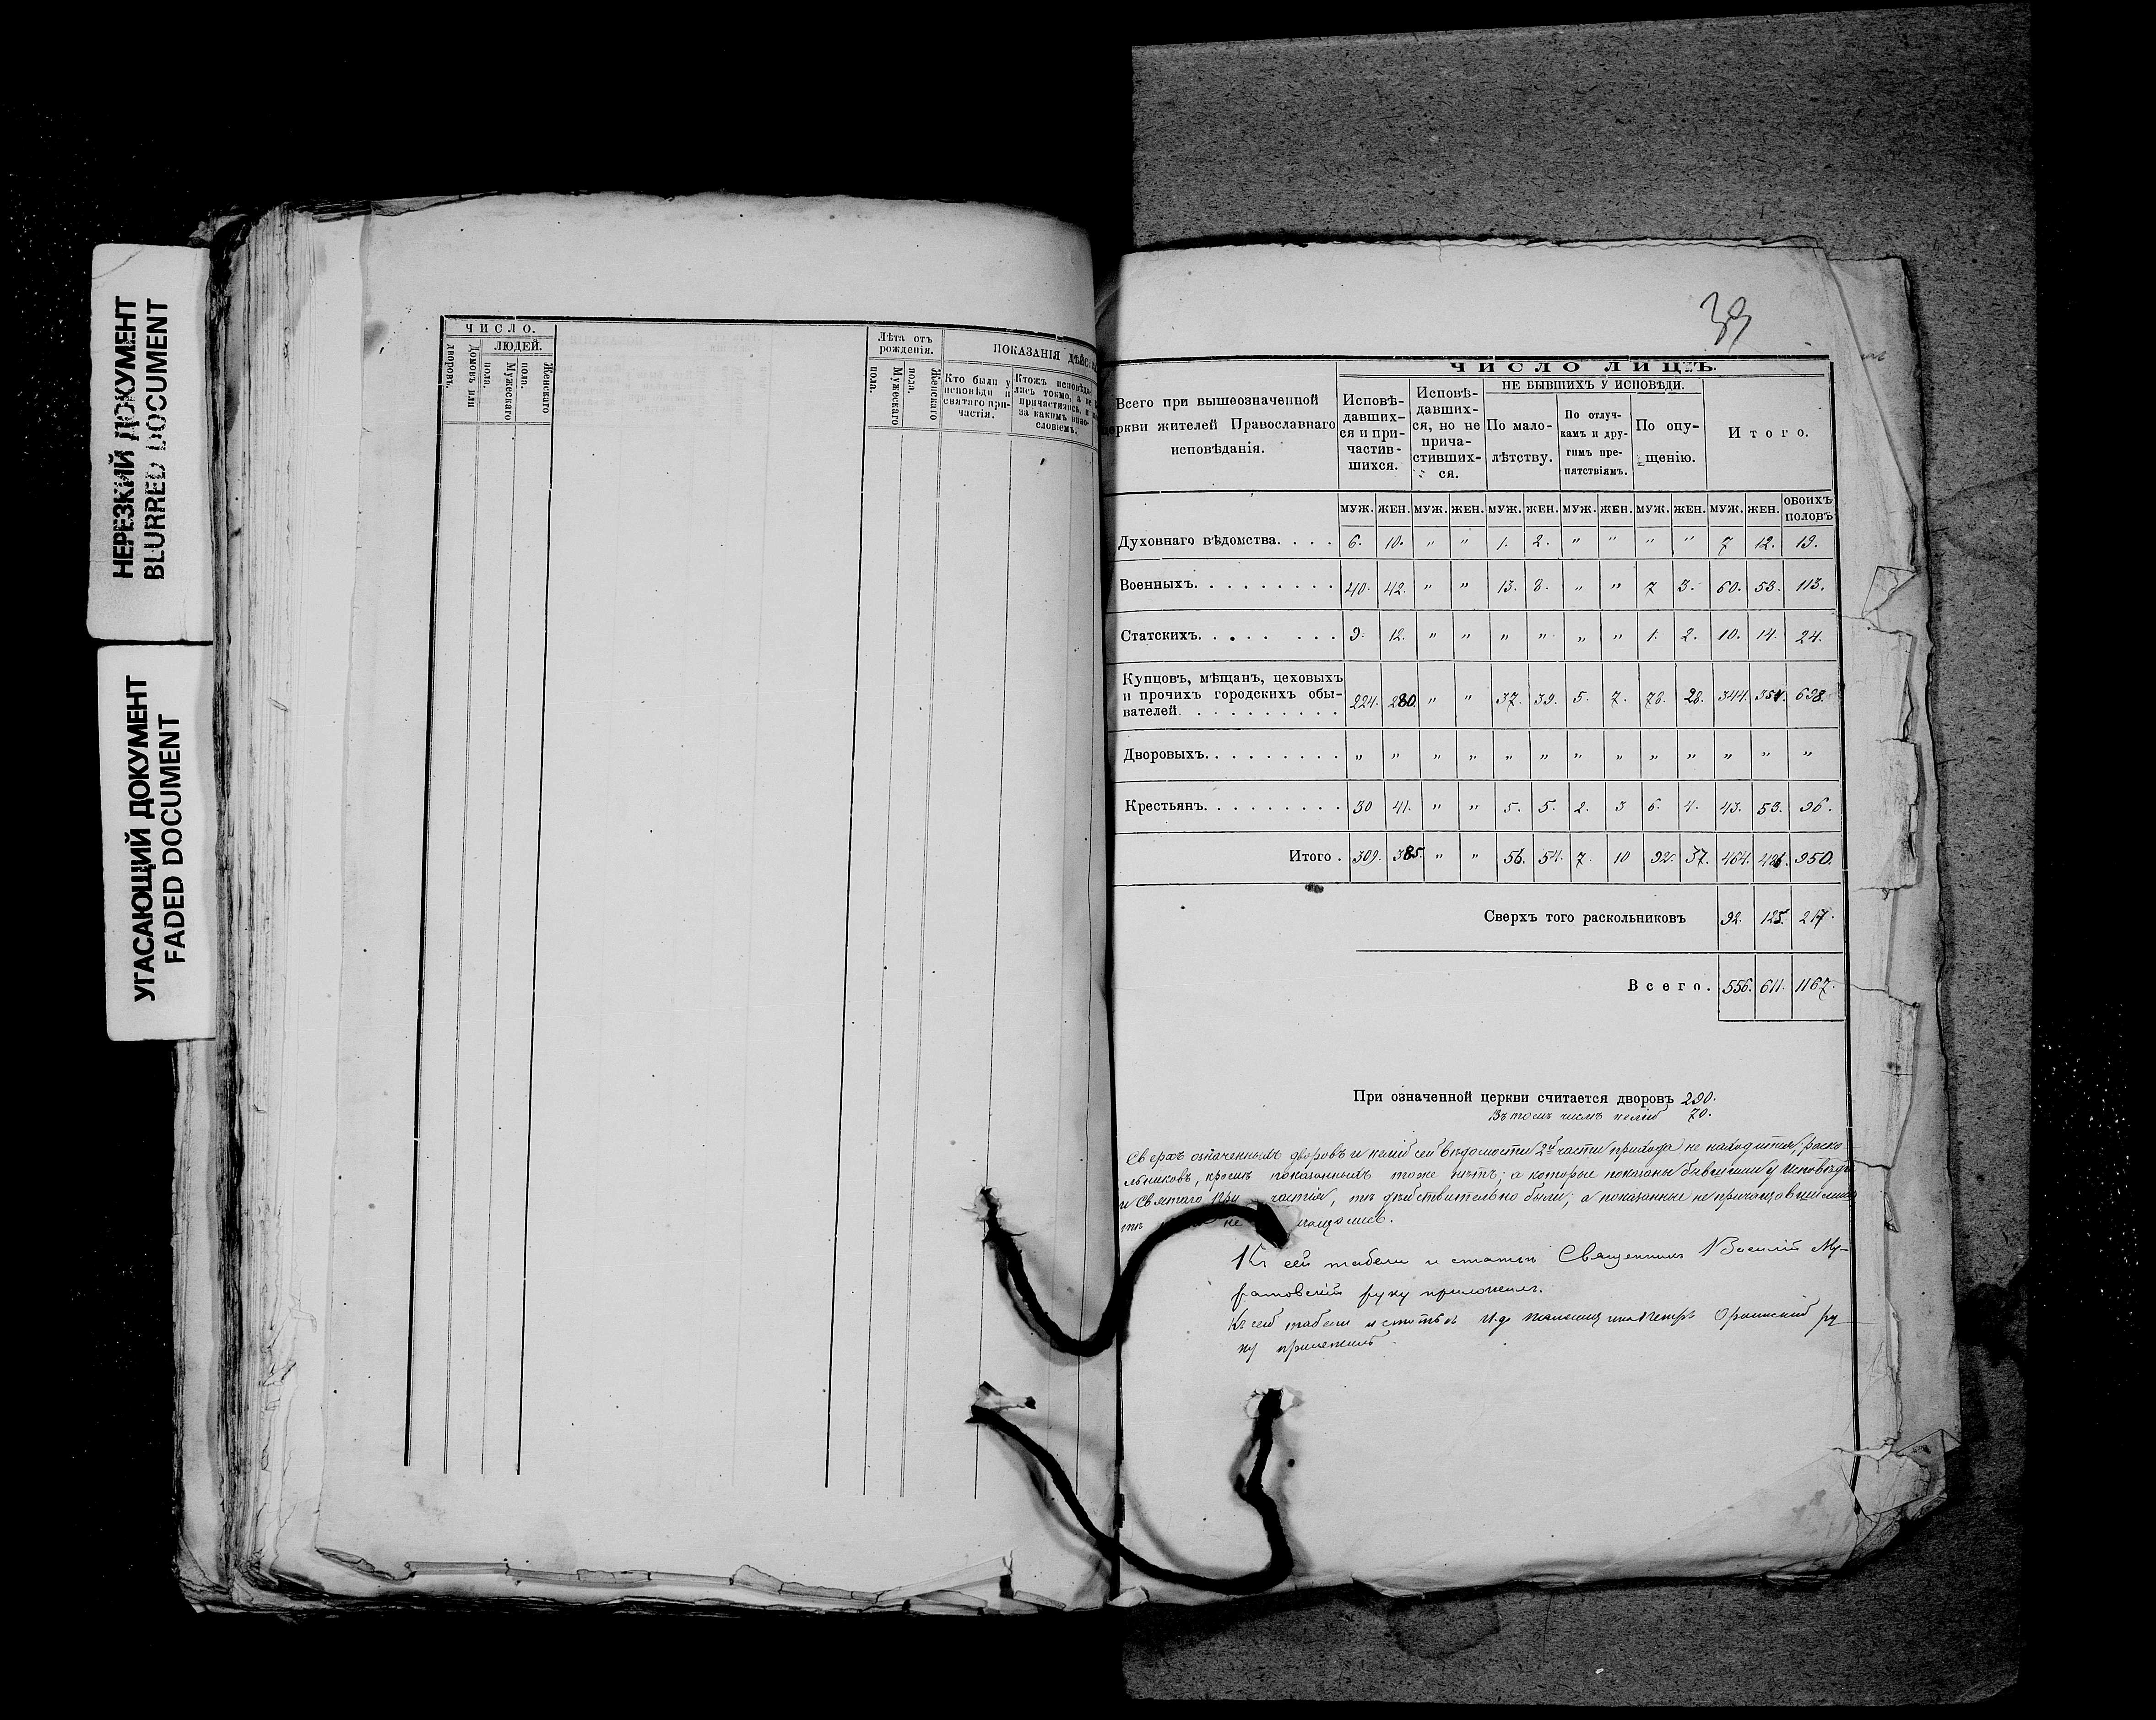 НЕРЕЗКИЙ ДОКУМЕНТ
BLURRED DOCUMENT
УГАСАЮЩИЙ ДОКУМЕНТ
FADED DOCUMENT
ЧИСЛО.
дворовъ.
домовъ или
ЛЮДЕЙ.
Мужескаго
пола.
Женскаго
пола.
Лѣта отъ
рожденія.
Мужескаго
пола.
Женскаго
пола.
ПОКАЗАНІЯ
Кто были у
исповѣди и
святаго при-
частія.
Ктожъ исповѣда-
лись токмо, а не
причастились, и
за какимъ вино-
словіемъ.
39
ЧИСЛО ЛИЦЪ.
Всего при вышеозначенной
церкви жителей Православнаго
исповѣданія.
Исповѣ-
давших-
ся и при-
частив-
шихся.
Исповѣ-
давших-
ся, но не
прича-
стивших-
ся.
НЕ БЫВШИХЪ У ИСПОВѢДИ.
По мало-
лѣтству.
По отлуч-
камъ и дру-
гимъ пре-
пятствіямъ.
По опу-
щенію.
Итого.
МУЖ. ЖЕН. МУЖ. ЖЕН. МУЖ. ЖЕН. МУЖ. ЖЕН. МУЖ. ЖЕН. МУЖ. ЖЕН. ОБОИХЪ ПОЛОВЪ
Духовнаго вѣдомства. . . . 6. 10. " " 1. 2. " " " " 7 12. 19.
Военныхъ. . . . . . . . . 40. 42. " " 13. 8. " " 7 3. 60. 53. 113.
Статскихъ. . . . . . . . 9. 12. " " " " " " 1. 2. 10. 14. 24.
Купцовъ, мѣщанъ, цеховыхъ
и прочихъ городскихъ обы-
вателей. . . . . . . . . . 224. 280. " " 37. 39. 5. 7. 78. 28. 344. 354. 698.
Дворовыхъ. . . . . . . . . " " " " " " " " " " " " "
Крестьянъ. . . . . . . . . 30 41. " " 5. 5. 2. 3 6. 4. 43. 53. 96.
Итого . 309. 385. " " 56. 54. 7. 10 92. 37. 464. 486. 950.
Сверхъ того раскольниковъ 92. 125. 217.
Всего. 556. 611. 1167.
При означенной церкви считается дворовъ 290.
Въ томъ числѣ келій 70.
Сверхъ означенныхъ дворовъ и келій сей вѣдомости 2й части прихода не находится; раско
льниковъ, кромѣ показанныхъ тоже нѣтъ; а которые показаны бывшими у исповѣди
и Святаго При частія, тѣ дѣйствительно были; а показанные не причащавшимися
тѣ не
Къ сей табели и статьи Священникъ Василій Му-
ратовскій руку приложилъ.
Къ сей табели и статьѣ И.д. Петръ ру
ку приложилъ.